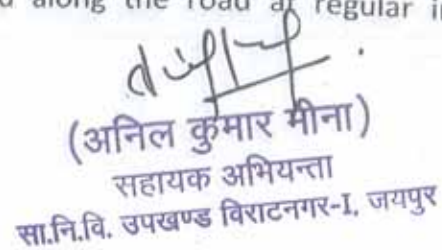 along the road at regular
(अनिल कुमार मीना)
सहायक अभियन्ता
सा.नि.वि. उपखण्ड विराटनगर-I, जयपुर